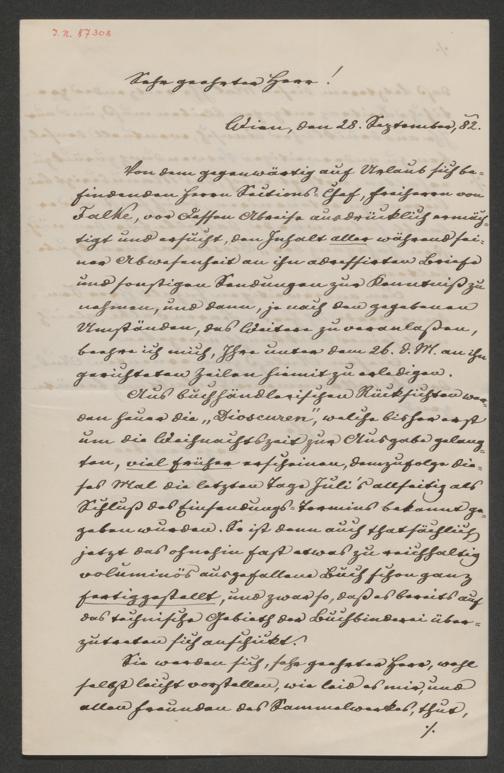 J. N. 87308
Sehr geehrter Herr!
Wien, den 28. September, 82.
Von dem gegenwärtig auf Urlaub sich be-
findenden Herrn Sections-Chef, Freiherrn von
Falke, vor dessen Abreise ausdrücklich ermäch-
tigt und ersucht, den Inhalt aller während sei-
ner Abwesenheit an ihn adressirten Briefe
und sonstigen Sendungen zur Kenntniß zu
nehmen, und dann, je nach den gegebenen
Umständen, das Weitere zu veranlaßen,
beehre ich mich, Ihre unter dem 26. d. M. an ihn
gerichteten Zeilen hiemit zu erledigen.
Aus buchhändlerischen Rücksichten wer-
den heuer die „Dioscuren", welche bisher erst
um die Weihnachtszeit zur Ausgabe gelang-
ten, viel früher erscheinen, demzufolge die-
ses Mal die letzten Tage Juli's allseitig als
Schluß des Einsendungs-Termins bekannt ge-
geben wurden. So ist denn auch thatsächlich
jetzt das ohnehin fast etwas zu reichhaltig
voluminös ausgefallene Buch schon ganz
fertiggestellt, und zwar so, daß es bereits auf
das technische Gebieth der Buchbinderei über-
zutreten sich anschickt.
Sie werden sich, sehr geehrter Herr, wohl
selbst leicht vorstellen, wie leid es mir und
allen Freunden des Sammelwerkes, thut,
./.